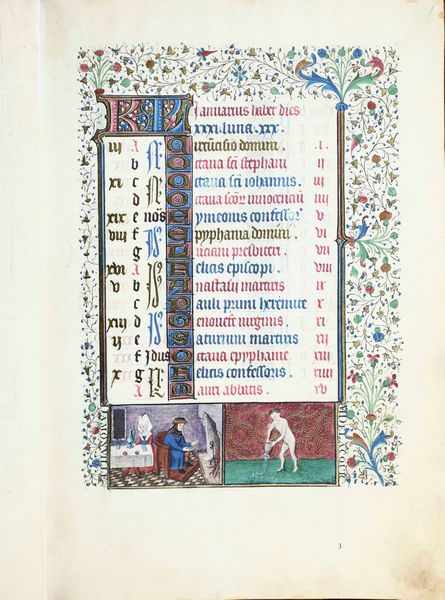 KL Januarius habet dies
xxxi. luna. xxx.
iii A Circūcisio domini. .i.
b Octaua sci stephani ii
xi c Octaua sci iohannis. iii
d Octaua scōr innocenciū iiii
xix e nōs Symeonis confessor v
viii f Epyphania domini. vi
g Luciani presbiteri. vii
xvi A Felicis episcopi. viii
v b Anastasii martiris ix
c Pauli primi heremite x
xiii d virginis. xi
ii e Saturnini martiris xii
f Idus Octaua epyphanie xiii
x g Felicis confessoris. xiiii
A Mauri abbatis. xv
3